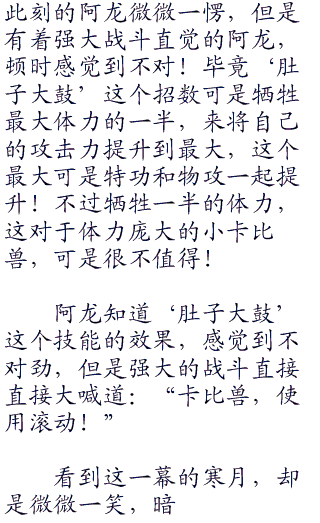 此刻的阿龙微微一愣，但是
有着强大战斗直觉的阿龙，
顿时感觉到不对！毕竟‘肚
子大鼓’这个招数可是牺牲
最大体力的一半，来将自己
的攻击力提升到最大，这个
最大可是特功和物攻一起提
升！不过牺牲一半的体力，
这对于体力庞大的小卡比
兽，可是很不值得！
阿龙知道‘肚子大鼓’
这个技能的效果，感觉到不
对劲，但是强大的战斗直接
直接大喊道：“卡比兽，使
用滚动！”
看到这一幕的寒月，却
是微微一笑，暗